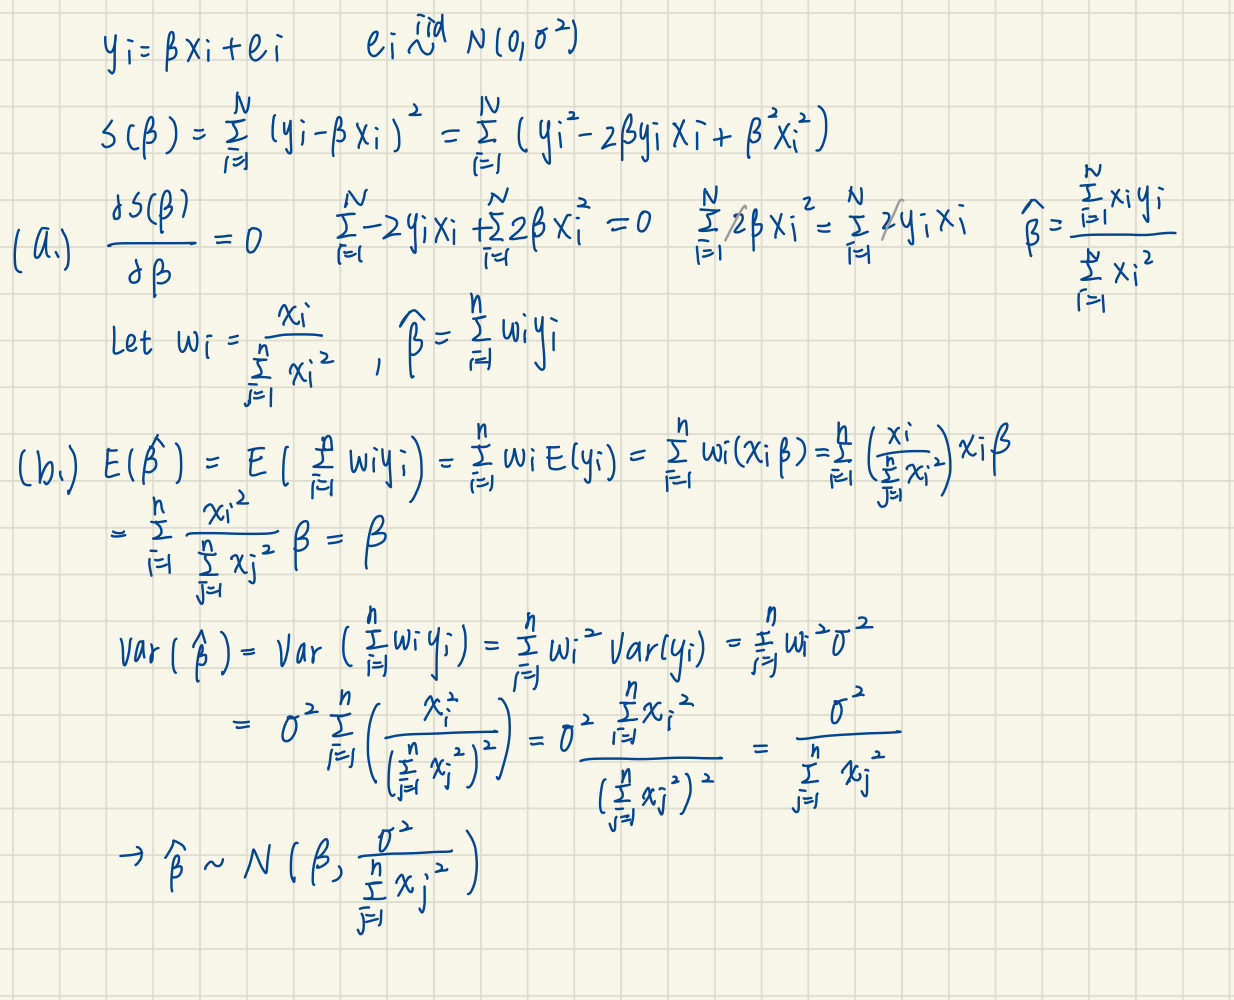 yi = βxi + ei    ei iid~ N(0, σ²)
S(β) = Σ_{i=1}^{N} (yi - βxi)² = Σ_{i=1}^{N} (yi² - 2βyixi + β²xi²)
(a.) ∂S(β)/∂β = 0    Σ_{i=1}^{N} -2yixi + Σ_{i=1}^{N} 2βxi² = 0    Σ_{i=1}^{N} 2βxi² = Σ_{i=1}^{N} 2yixi    β̂ = Σ_{i=1}^{N} xiyi / Σ_{i=1}^{N} xi²
Let wi = xi / Σ_{j=1}^{n} xi² , β̂ = Σ_{i=1}^{n} wiyi
(b.) E(β̂) = E(Σ_{i=1}^{n} wiyi) = Σ_{i=1}^{n} wi E(yi) = Σ_{i=1}^{n} wi(xiβ) = Σ_{i=1}^{n} (xi / Σ_{j=1}^{n} xi²) xiβ
= Σ_{i=1}^{n} xi² / Σ_{j=1}^{n} xj² β = β
Var(β̂) = Var(Σ_{i=1}^{n} wiyi) = Σ_{i=1}^{n} wi² Var(yi) = Σ_{i=1}^{n} wi²σ²
= σ² Σ_{i=1}^{n} (xi² / (Σ_{j=1}^{n} xj²)²) = σ² Σ_{i=1}^{n} xi² / (Σ_{j=1}^{n} xj²)² = σ² / Σ_{j=1}^{n} xj²
→ β̂ ~ N(β, σ² / Σ_{j=1}^{n} xj²)